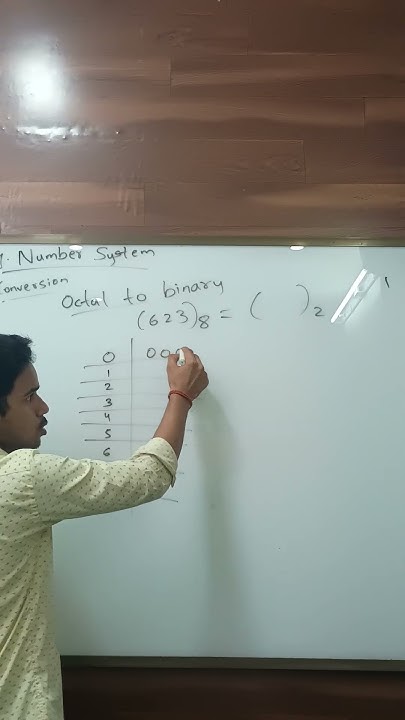 Number System
Conversion
Octal to binary
(623)8 = ( )2
0 00
1
2
3
4
5
6